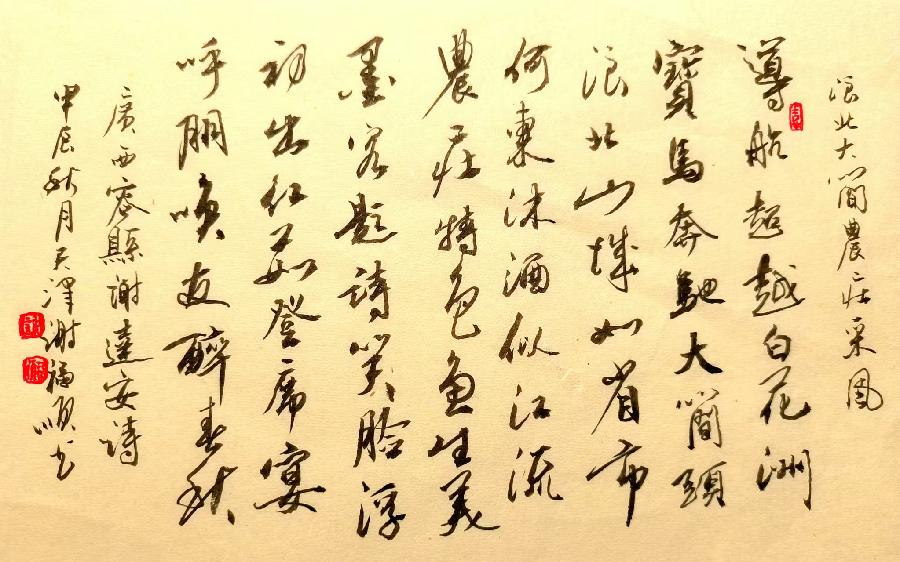 浪北大簡農莊采風
導船超越白花洲
寶馬奔馳大簡頭
浪北山城如省市
何沫酒似江流
農莊特色魚生美
墨客題詩笑臉浮
初出紅菇登席宴
呼朋喚友醉春秋
廣西容縣謝達安詩
甲辰秋月天澤謝福順書